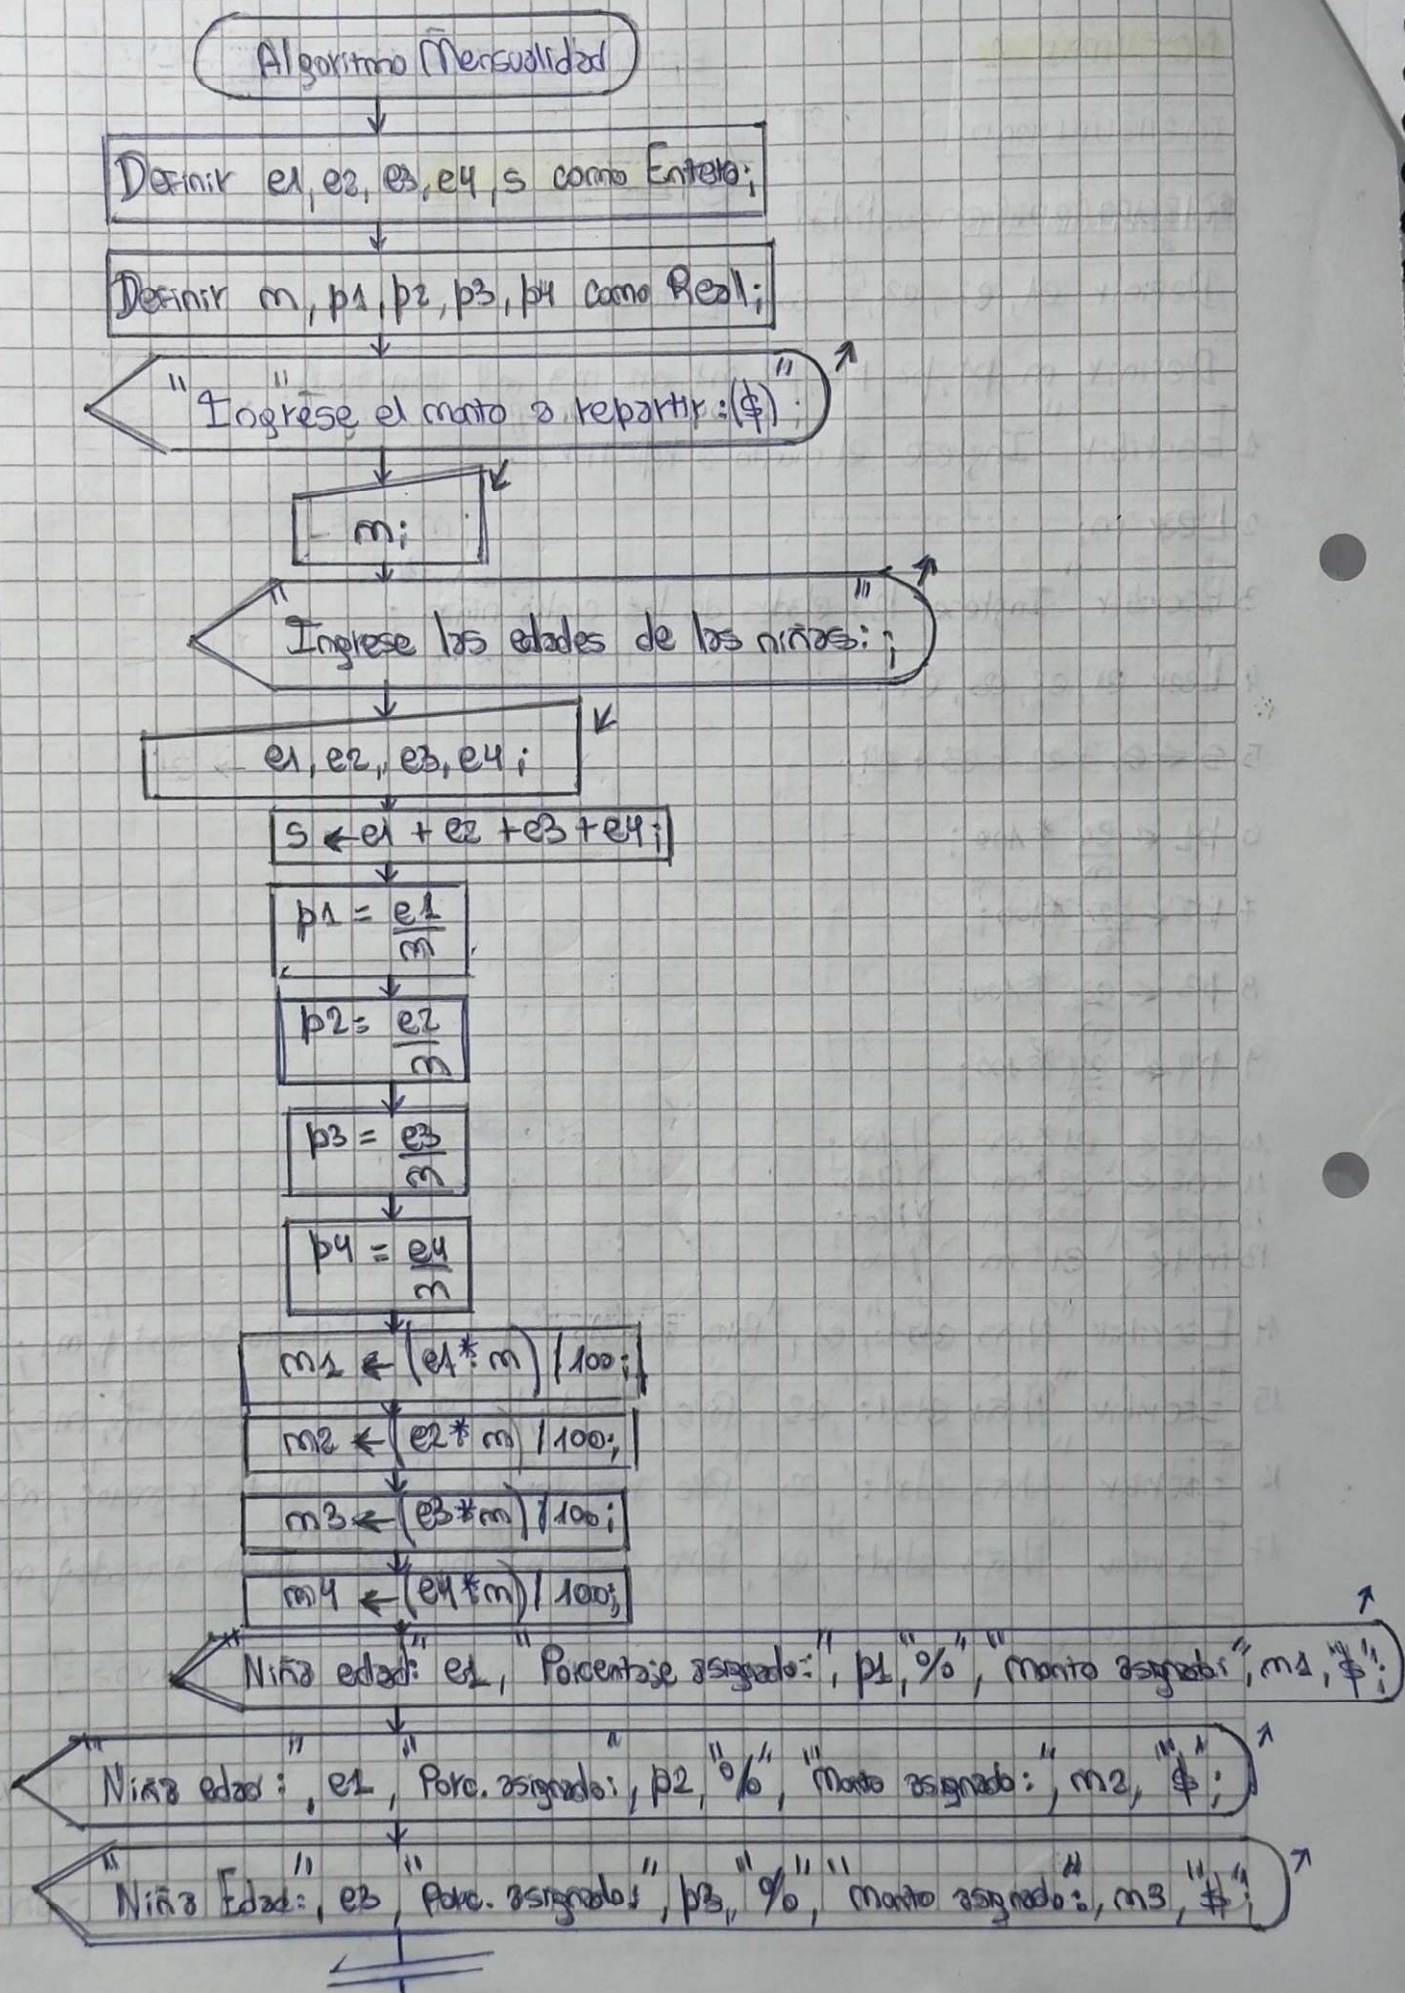 Algoritmo Mensualidad
Definir e1, e2, e3, e4, s como Entero;
Definir m, p1, p2, p3, p4 como Real;
"Ingrese el monto a repartir:($)";
m;
"Ingrese las edades de las niñas:";
e1, e2, e3, e4;
s ← e1 + e2 + e3 + e4;
p1 = e1/m
p2 = e2/m
p3 = e3/m
p4 = e4/m
m1 ← (e1 * m) / 100;
m2 ← (e2 * m) / 100;
m3 ← (e3 * m) / 100;
m4 ← (e4 * m) / 100;
"Niña edad:" e1, "Porcentaje asignado:", p1, "%", "Monto asignado:", m1, "$";
"Niña edad:", e1, "Porc. asignado:", p2, "%", "Monto asignado:", m2, "$";
"Niña Edad:", e3, "Porc. asignado:", p3, "%", "Monto asignado:", m3, "$";